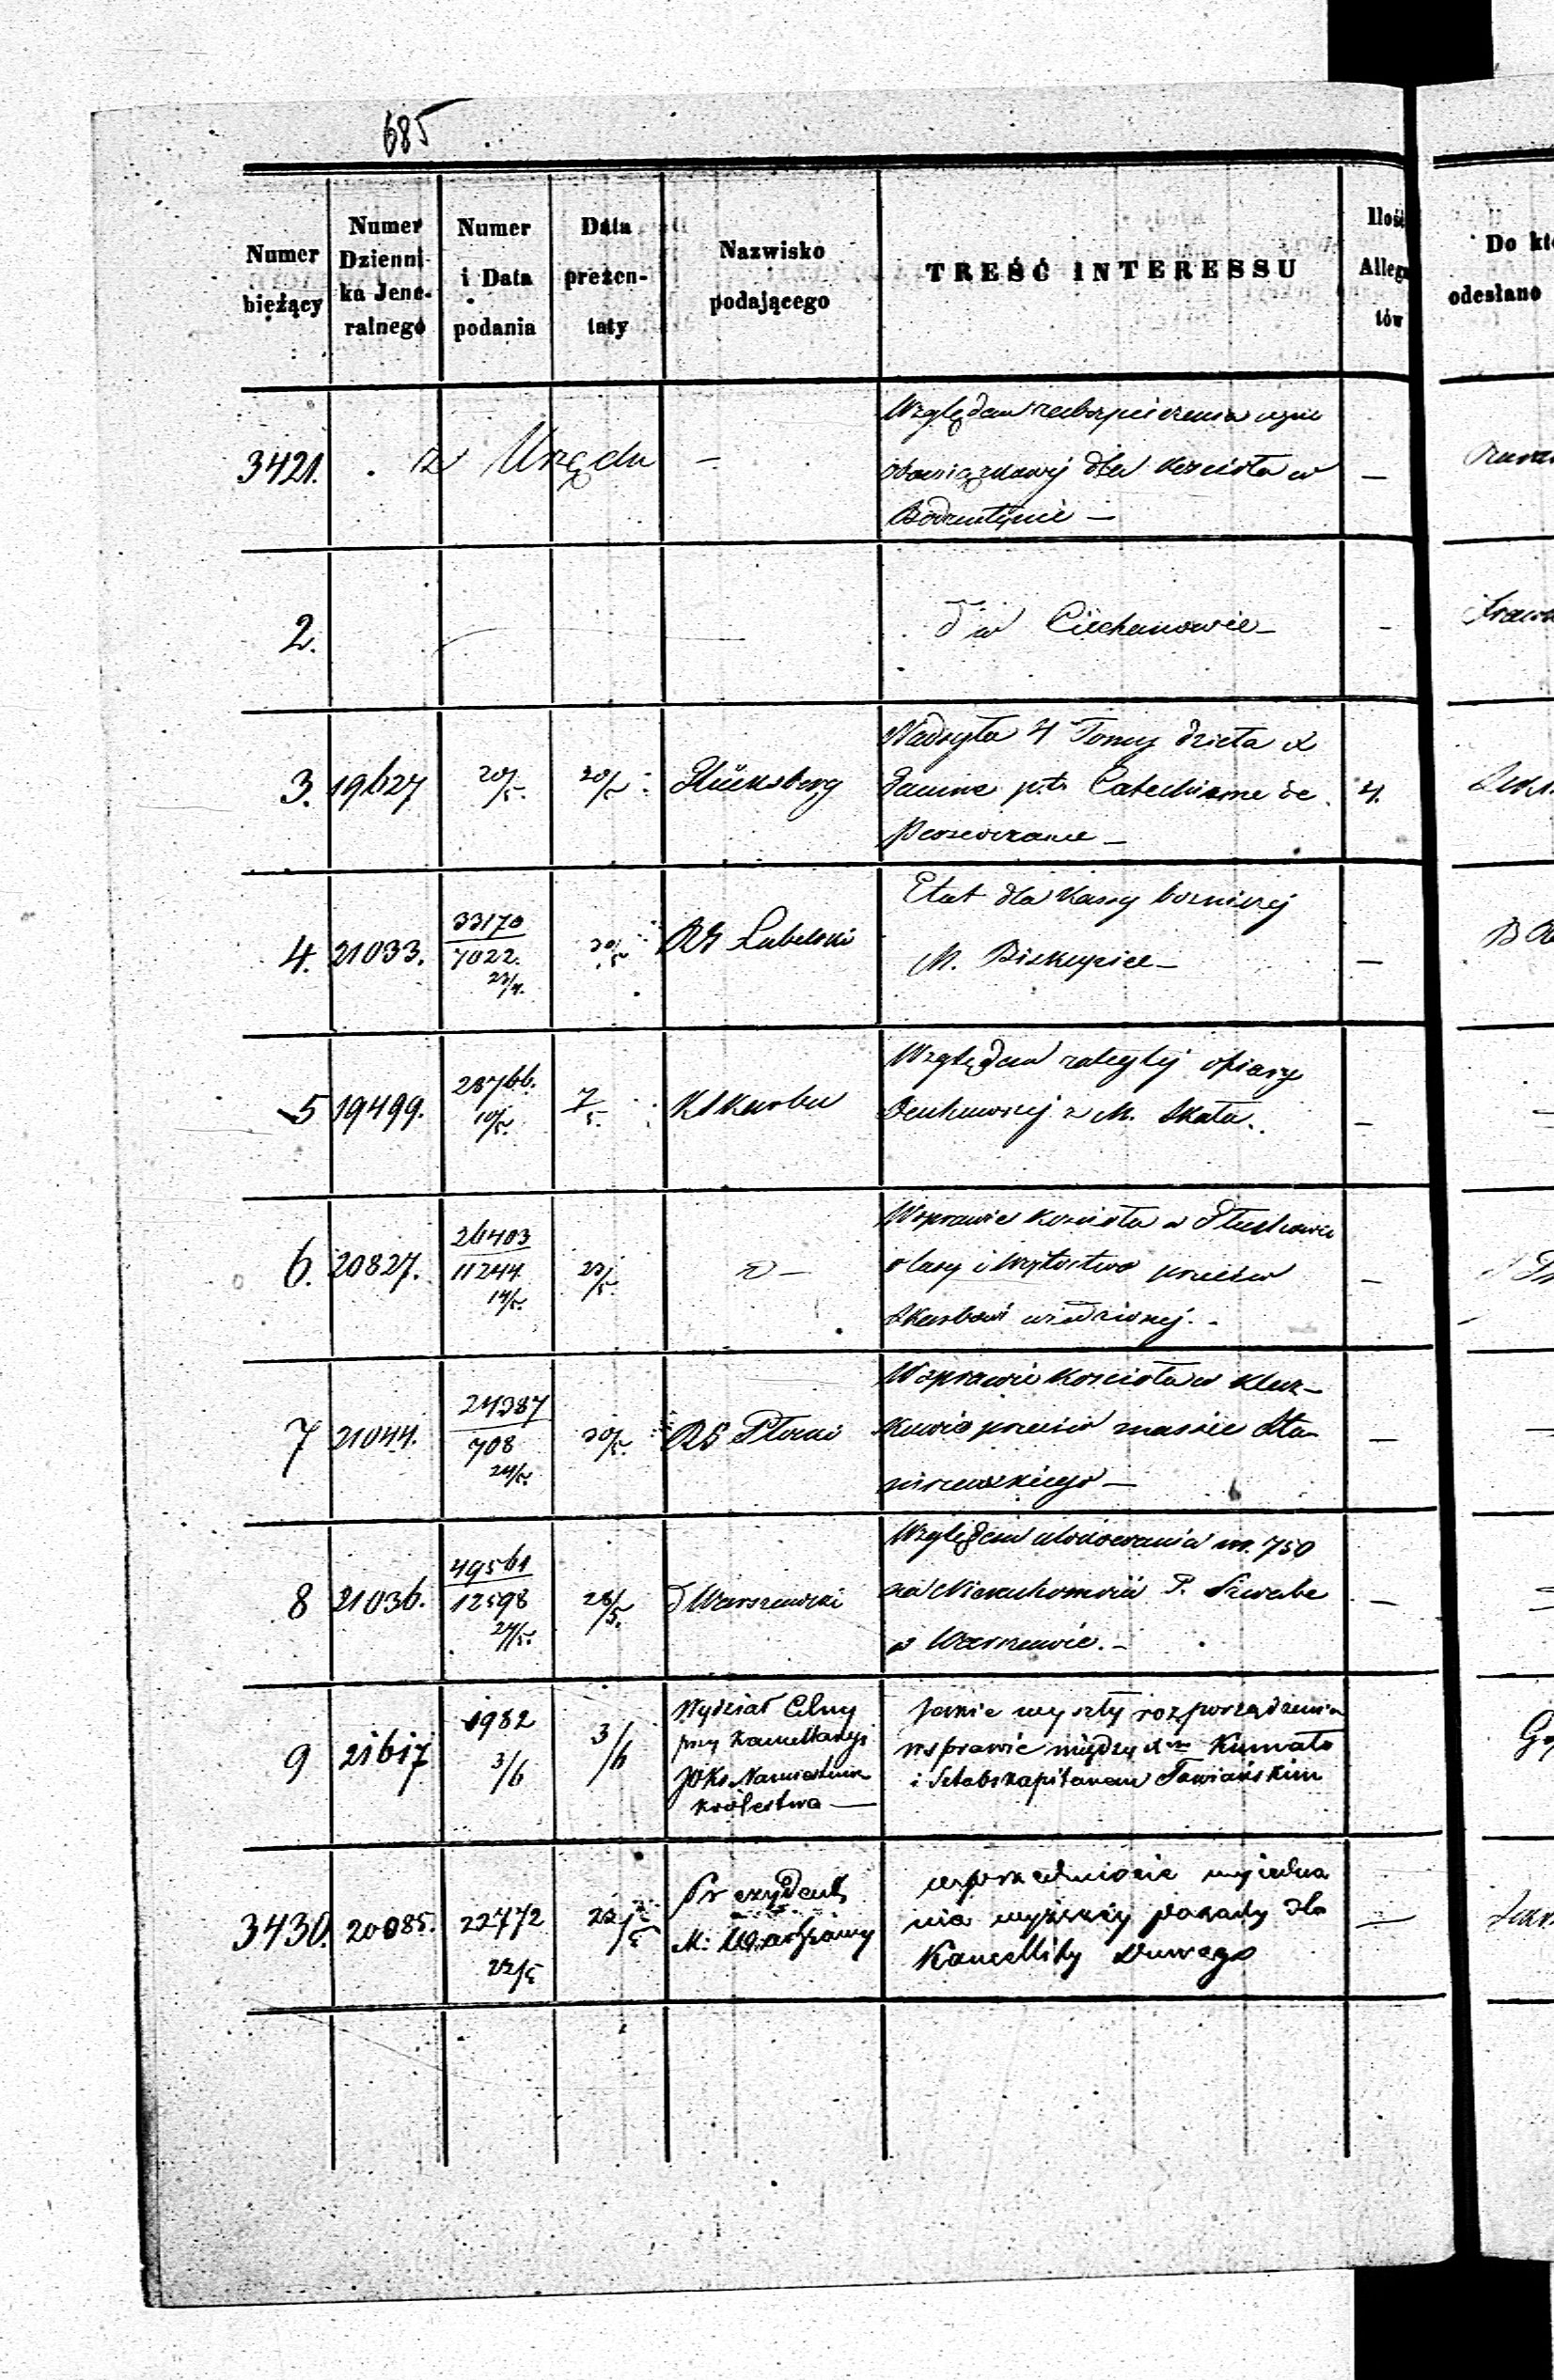 685
Numer bieżący
Numer Dzienni- ka Jene- ralnego
Numer i Data podania
Data prezen- taty
Nazwisko podającego
TREŚĆ INTERESSU
Ilość Allega tów
Do któ
odesłano
3421. z Urzędu —
Względem zabezpieczenia
dla Kościoła w —
Bodzentynie —
2.
d° w Ciechanowie — -
3. 19627 20/5. 20/5 Glücksberg
Nadsyła 4 Tomy dzieła X
Jauina p.t. Catechisme de 4.
Perseverance —
4. 21033. 33170 / 7022. 23/4. 30/5 RG Lubelski
Etat dla Kassy bożniczej
M. Biskupice — —
5 19499. 28766. 10/5. 7/5. K Skarbu
Względem zaległej ofiary
Duchownej z M. Skała. —
6. 20827. 26403 / 11244 14/5. 23/5. d° —
W sprawie Kościoła w
o lasy i Wójtostwo przeciw —
Skarbowi wiedzionej. -
7 21044. 24387 / 708 24/5. 30/5. RG Płocki
W sprawie Kościoła w Kucz-
przeciw massie Sta- —
niszewskiego —
8 21036. 49561 / 12598 27/5. 28/5. d° Warszawski
Względem ulokowania rs. 750
na Nieruchomości P. Szwabe —
w Warszawie. -
9 21617 1982 3/6 3/6
Wydział Celny
przy Kancellaryi
JOKs Namiestnika
Królestwa —
Jakie wyszły rozporządzenia
w sprawie między Xm Kumato
i Sztabskapitanem Towiańskim
3430. 20085. 22772 22/5 22/5
Prezydent
M: Warszawy
w przedmiocie wyjedna
nia wyższej posady dla —
Kancellisty